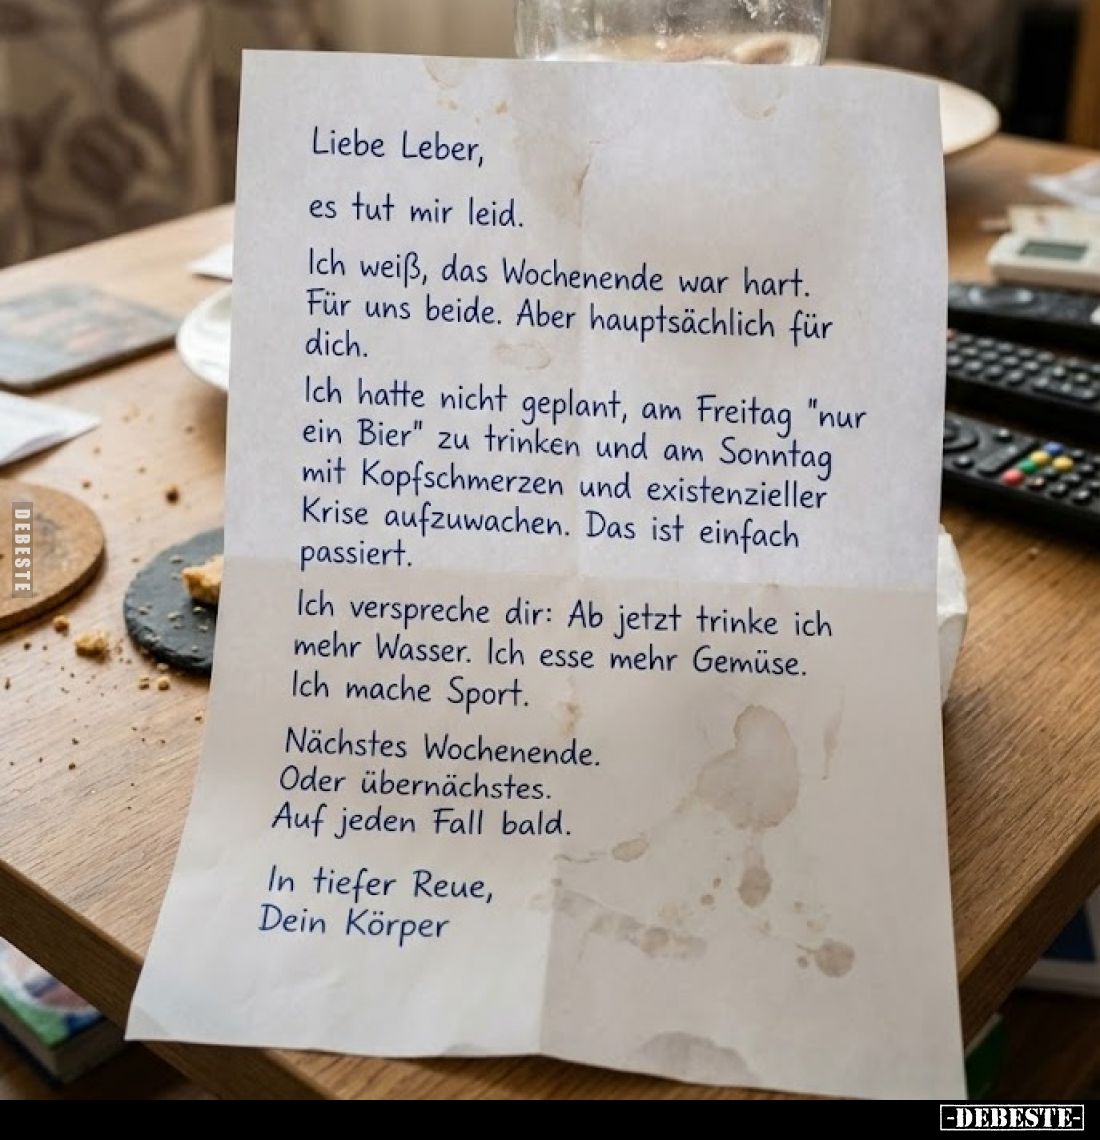 Liebe Leber,
es tut mir leid.
Ich weiß, das Wochenende war hart.
Für uns beide. Aber hauptsächlich für
dich.
Ich hatte nicht geplant, am Freitag "nur
ein Bier" zu trinken und am Sonntag
mit Kopfschmerzen und existenzieller
Krise aufzuwachen. Das ist einfach
passiert.
Ich verspreche dir: Ab jetzt trinke ich
mehr Wasser. Ich esse mehr Gemüse.
Ich mache Sport.
Nächstes Wochenende.
Oder übernächstes.
Auf jeden Fall bald.
In tiefer Reue,
Dein Körper
DEBESTE
-DEBESTE-